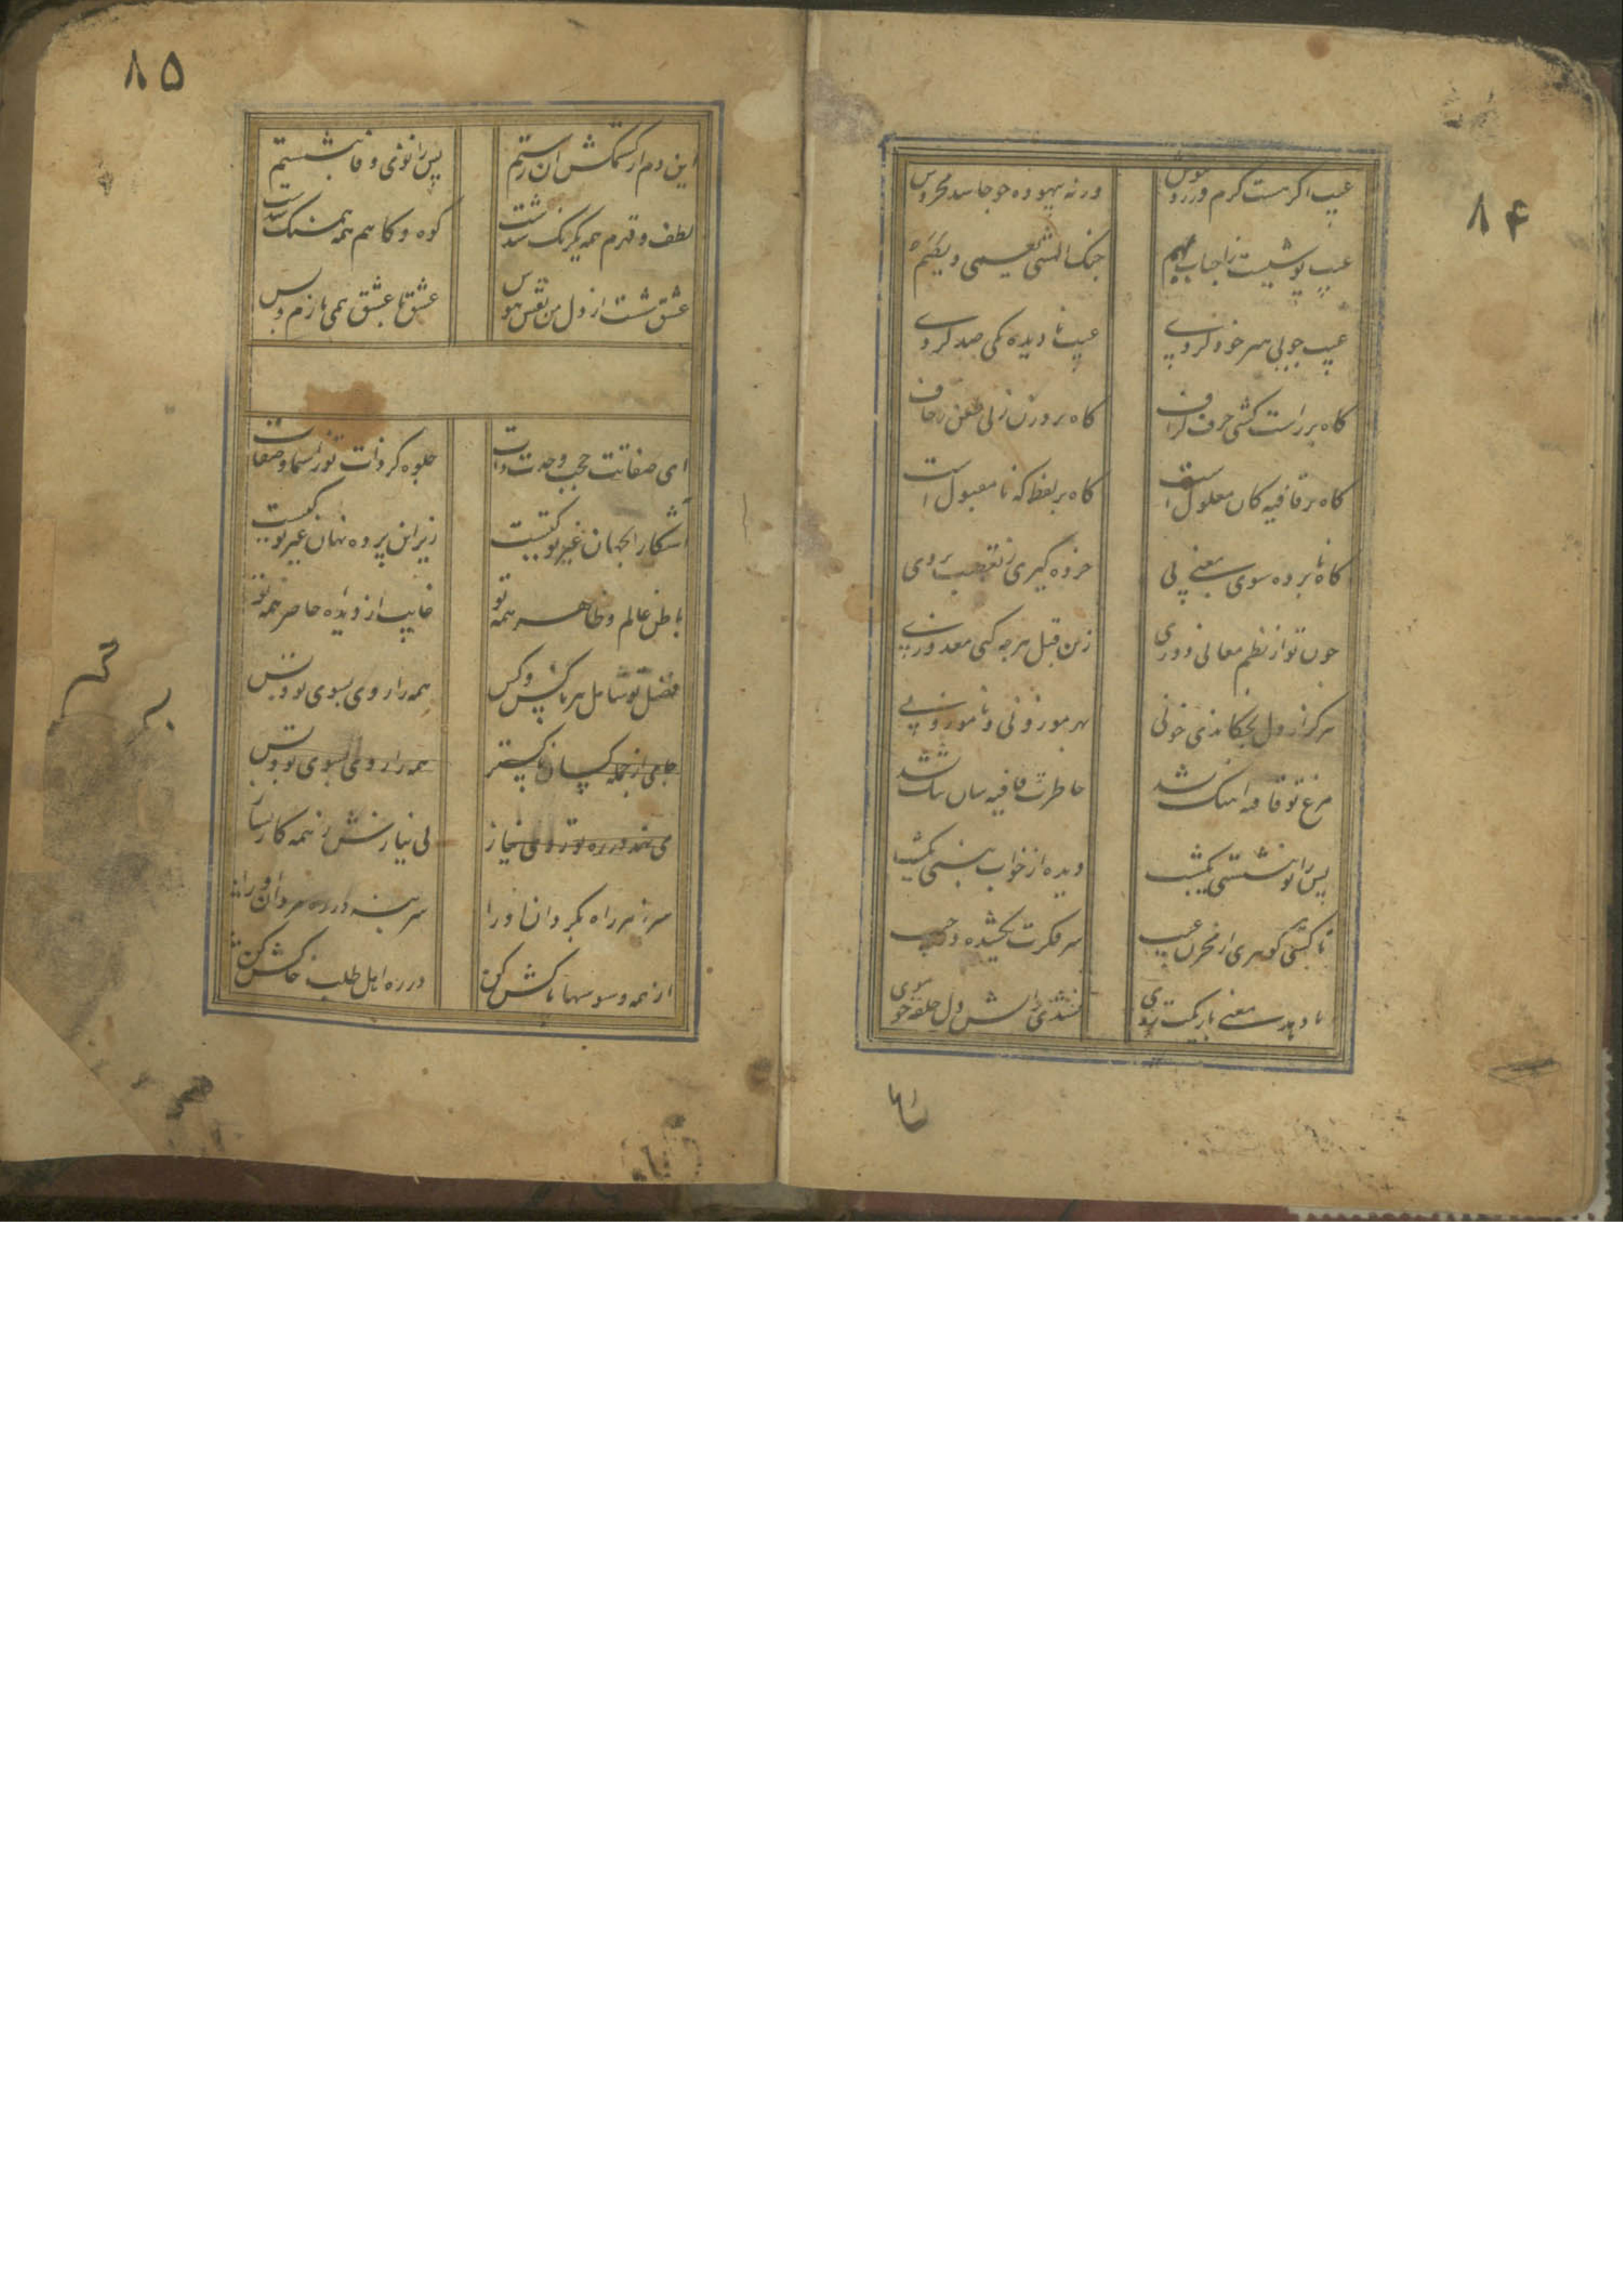 ۸۴
عیب اگر هست کرم ورز و بپوش
ورنه بیهوده چو حاسد مخروش
عیب پوشیست ز احباب مهم
عیب جویی هنر خود کردی
عیب نادیده یکی صد کردی
گاه بر راست کشی حرف گزاف
گاه بر وزن زنی طعن زحاف
گاه بر قافیه کان معلول است
گاه بر لفظ که نامقبول است
گاه نابرده سوی معنی پی
خرده گیری ز تعصب بر وی
چون تو از نظم معانی دوری
زین قبل هرچه کنی معذوری
هرگز از دل نچکانده خونی
بهر موزونی و ناموزونی
مرغ تو قافیه آهنگ نشد
خاطرت قافیه سان تنگ نشد
پس زانو ننشستی یک شب
دیده از خواب نبستی یک شب
تا کشی گوهری از مخزن غیب
سر فکرت نکشیده در جیب
نادهد معنی باریکت روی
نشدی ز آتش دل حلقه چو موی
۸۵
این دم از کشمکش آن رستم
پس زانوی وفا بنشستم
لطف و قهرم همه یکرنگ شدست
کوه و کاهم همه همسنگ شدست
عشق شست از دل من نقش هوس
عشق با عشق همی بازم و بس
ای صفاتت حجب وحدت ذات
جلوه گر ذات تو ز اسما و صفات
آشکارا به جهان غیر تو کیست
زیر این پرده نهان غیر تو کیست
باطن عالم و ظاهر همه تو
غایب از دیده و حاضر همه تو
فضل تو شامل هر ناکس و کس
همه را روی بسوی تو و بس
جامی از جمله کسان ناکستر
همه را روی بسوی تو و بس
می نهد در ره تو روی نیاز
بی نیازش ز همه کار بساز
سر ز هر راه بگردان او را
سر بنه در ره مردان او را
از همه وسوسها پاکش کن
در ره اهل طلب خاکش کن